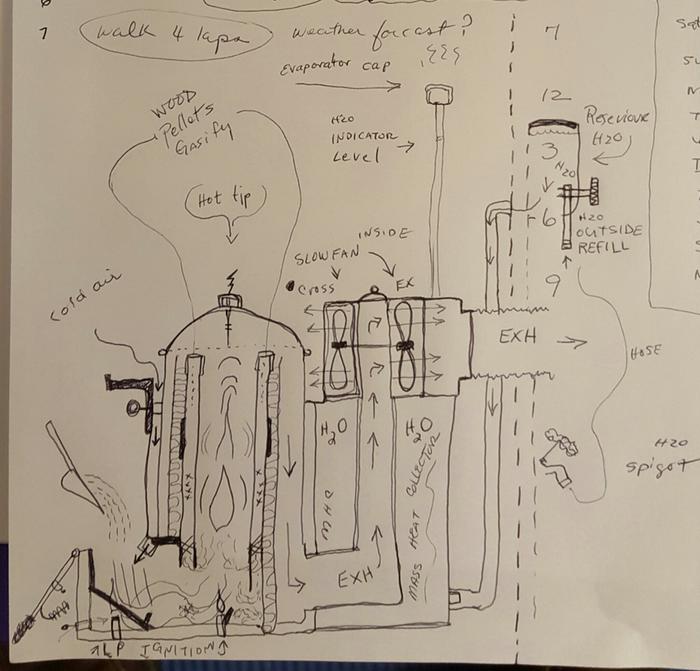 7 walk 4 laps weather forcast? 7
Evaporator cap
WOOD
Pellets
Gasify
H20
INDICATOR
Level
12
Reseviour
H20
3
H20
Hot tip
6
H20
OUTSIDE
REFILL
INSIDE
SLOW FAN
Cross
EX
9
cold air
EXH
HOSE
H2O
H2O
MASS HEAT COLLECTOR
MHC
H20
spigot
EXH
LP IGNITION